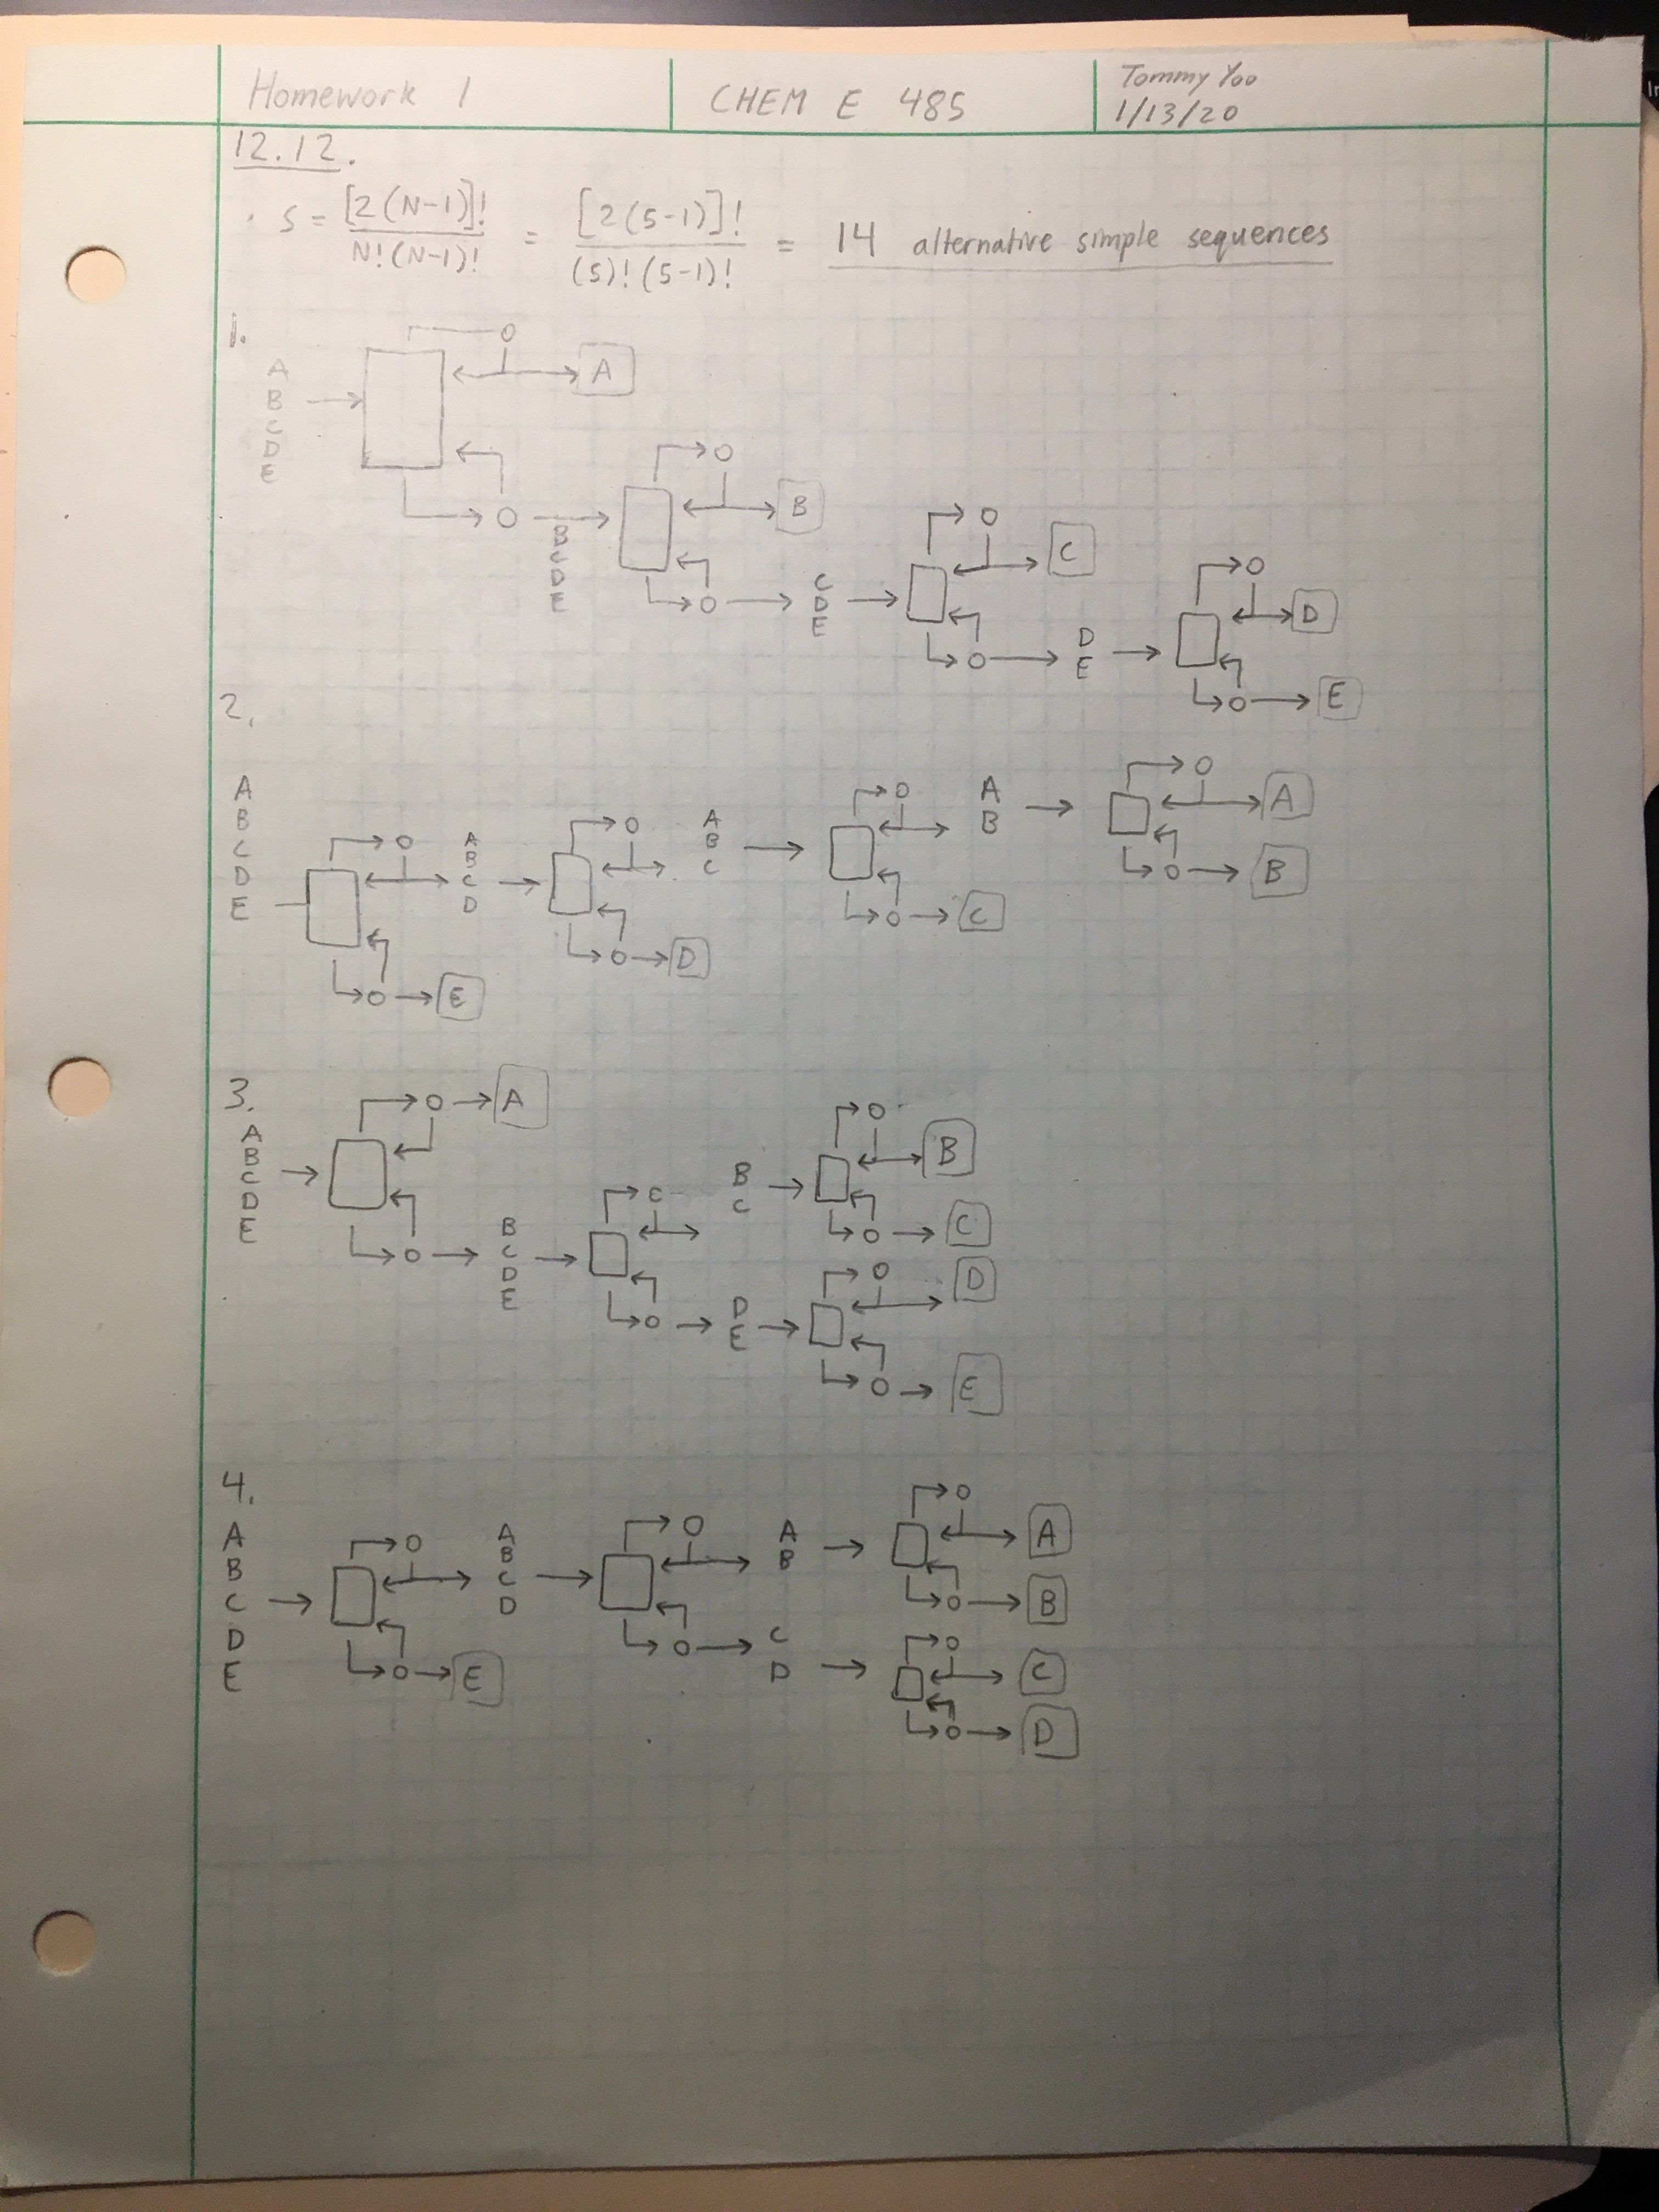 Homework 1
CHEM E 485
Tommy Yoo
1/13/20
12.12.
· S = [2(N-1)]! / N!(N-1)! = [2(5-1)]! / (5)!(5-1)! = 14 alternative simple sequences
1.
A
B
C
D
E
A
B
C
D
E
B
C
D
E
C
D
E
D
E
2.
A
B
C
D
E
A
B
C
D
E
A
B
C
D
A
B
C
A
B
A
B
3.
A
B
C
D
E
A
B
C
D
E
B
C
D
E
B
C
D
E
4.
A
B
C
D
E
A
B
C
D
E
A
B
C
D
A
B
C
D